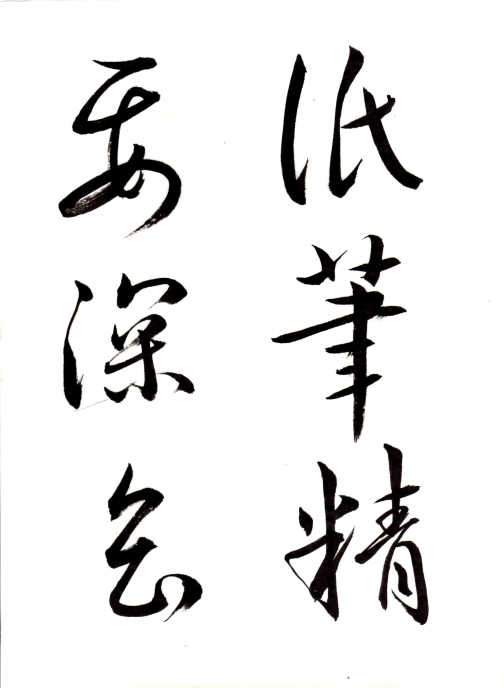 紙筆精
要深